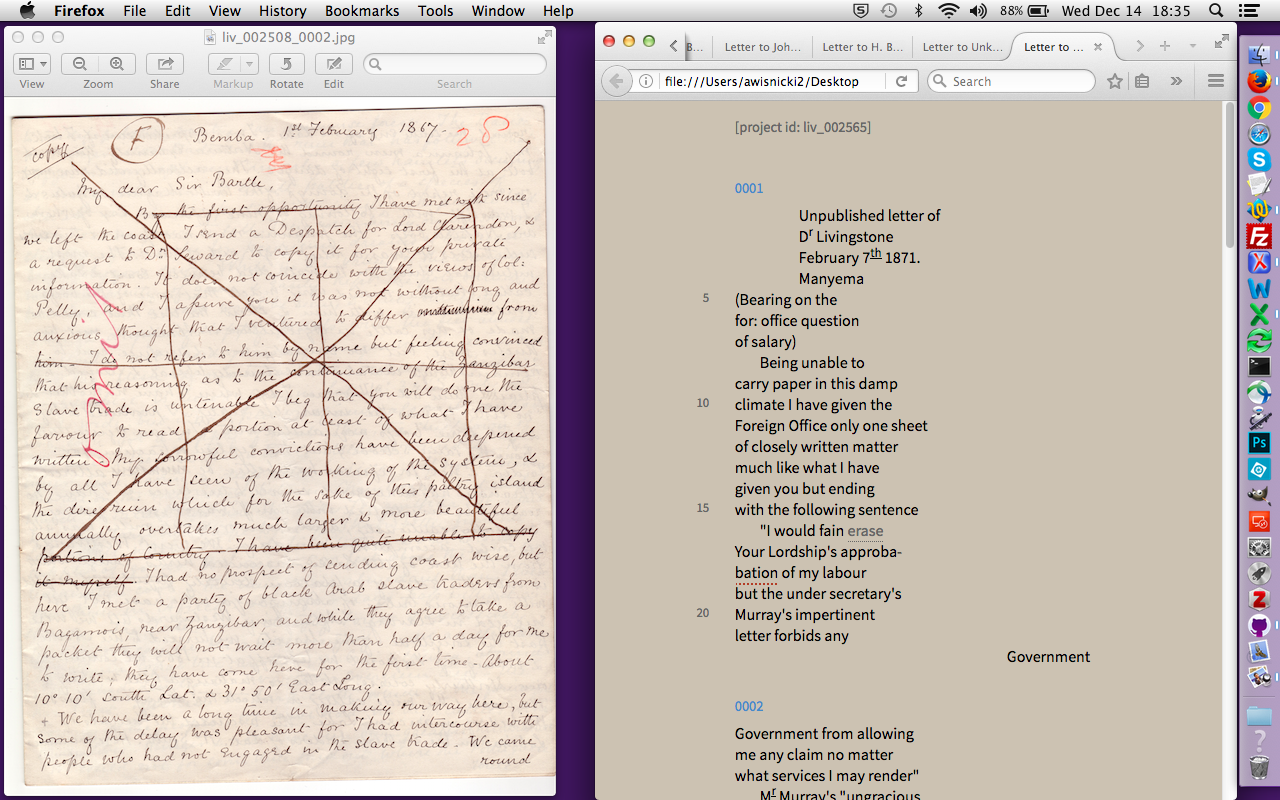 Firefox File Edit View History Bookmarks Tools Window Help 88% Wed Dec 14 18:35
liv_002508_0002.jpg
View Zoom Share Markup Rotate Edit Search
copy
F
Bemba. 1st February 1867. 28
My dear Sir Bartle,
By the first opportunity I have met with since
we left the coast I send a Despatch for Lord Clarendon, &
a request to Dr. Seward to copy it for your private
information. It does not coincide with the views of Col:
Pelly, and I assure you it was not without long and
anxious thought that I ventured to differ from
him. I do not refer to him by name but feeling convinced
that his reasoning as to the continuance of the Zanzibar
Slave trade is untenable I beg that you will do me the
favour to read a portion at least of what I have
written. My sorrowful convictions have been deepened
by all I have seen of the working of the system, &
the dire ruin which for the sake of this paltry island
annually overtakes much larger & more beautiful
portions of Country. I have been quite unable to copy
it myself. I had no prospect of sending coast wise, but
here I met a party of black Arab slave traders from
Bagamoio, near Zanzibar, and while they agree to take a
packet they will not wait more than half a day for me
to write; they have come here for the first time. About
10° 10' South Lat. & 31° 50' East Long.
+ We have been a long time in making our way here, but
some of the delay was pleasant for I had intercourse with
people who had not engaged in the slave trade. We came
round
B... Letter to Joh... Letter to H. B... Letter to Unk... Letter to ...
file:///Users/awisnicki2/Desktop Search
[project id: liv_002565]
0001
Unpublished letter of
Dr Livingstone
February 7th 1871.
Manyema
5 (Bearing on the
for: office question
of salary)
Being unable to
carry paper in this damp
10 climate I have given the
Foreign Office only one sheet
of closely written matter
much like what I have
given you but ending
15 with the following sentence
"I would fain erase
Your Lordship's approba-
bation of my labour
but the under secretary's
20 Murray's impertinent
letter forbids any
Government
0002
Government from allowing
me any claim no matter
what services I may render"
Mr Murray's "ungracious